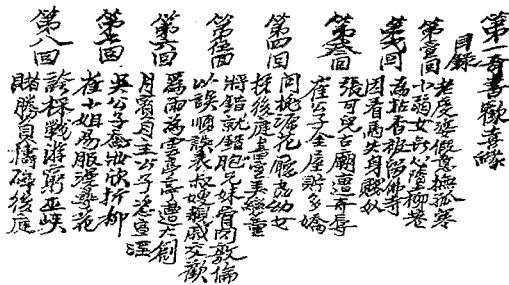 第一奇書歡喜緣
目錄
第壹回
老虔婆假意撫孤寡
小弱女無心墮柳巷
第貳回
為拈香被留佛寺
因看馬失身賤奴
第叁回
張可兒古廟遭奇辱
崔公子金屋貯多嬌
第四回
問桃源花廳虐幼女
探後庭書室美孌童
第伍回
將錯就錯胞兄妹骨肉敦倫
以誤順誤表叔嫂親戚交歡
第六回
為雨為雲學遭大創
月王公子恣宣淫
第七回
吳公子妝欣折柳
崔小姐易服漫尋花
第八回
誇採戰游窮巫峽
賭勝負擣碎後庭